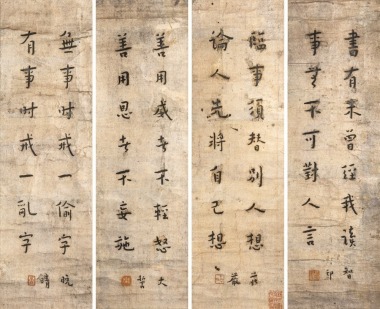 書有未曾經我讀
事無不可對人言
智
印
臨事須替別人想
論人先將自己想
善用威者不輕怒
善用恩者不妄施
大
哲
無事时戒一偷字
有事时戒一亂字
晚
晴